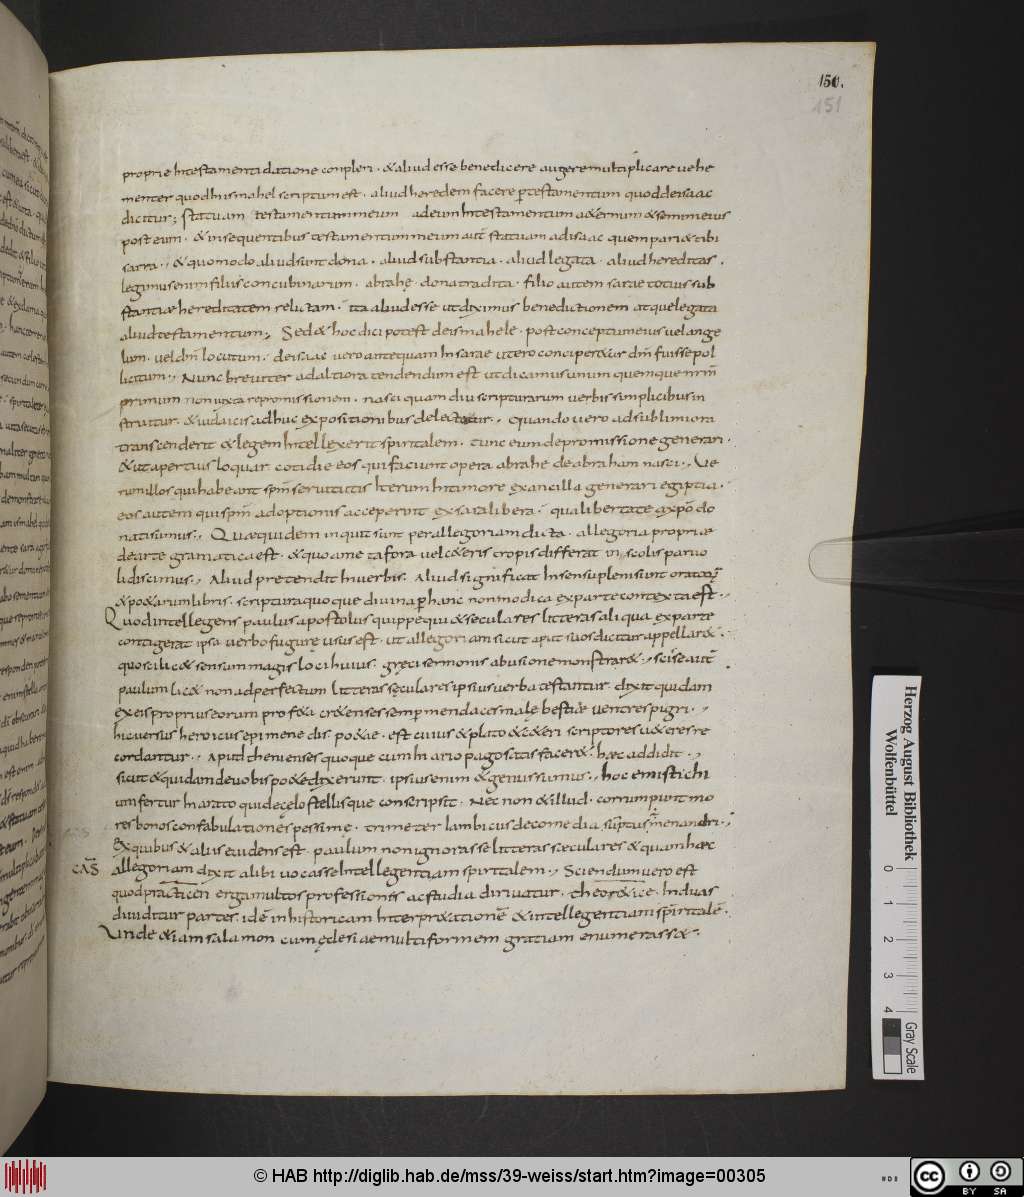 150.
151
proprie Intestamenti datione conpleri · & aliud esse benedicere augere multiplicare vehe
menter quodhismahel scriptum est · aliud heredem facere ptestamentum quoddeisaac
dicitur; statuam testamentummeum ad eum Intestamentum a&ernum & semini eius
post eum · & insequentibus testamentummeum aut statuam ad isaac quem pari& tibi
sarra · & quomodo aliud sunt dona · aliud substantia · aliud legata · aliud hereditas ·
legimus enim filiis concubinarum · abrahę · dona tradita · filio autem sarae totius sub
stantiæ hereditatem relictam · ita aliud esse ut diximus benedictionem atque legata
aliud testamentum; Sed & hoc dici potest deismahele · post conceptum eius vel ange
lum · vel dnm locutum · deisaac vero antequam In sarae utero conciperetur dnm fuisse pol
licitum; Nunc breviter ad altiora tendendum est ut dicamus unum quemque nrm
primum non iuxta repromissionem · nasci quam diu scripturarum verbis simplicibus in
struitur · & iudaicis adhuc expositionibus delectatur; Quando vero ad sublimiora
transcenderit & legem Intellexerit spiritalem · tunc eum de promissione generari ·
& ut apertius loquar cotidie eos qui faciunt opera abrahę de abraham nasci; Ve
rum illos qui habeant spm servitutis Iterum In timore ex ancilla generari egiptia ·
eos autem qui spm adoptionis acceperunt ex sara libera · qua libertate a xpo do
nati sumus; Quæ quidem inquit sunt per allegoriam dicta · allegoria propriæ
de arte gramatica est · & quo a metafora vel c&eris tropis differat in scolis parvo
li discimus; Aliud pretendit In verbis · Aliud significat In sensu pleni sunt oratorum
& po&arum libris · scriptura quoque divina p hanc non modica ex parte contexta est ·
Quod intellegens paulus apostolus quippe qui & seculares litteras aliqua ex parte
contigerat ipsa verbo fugurę usus est · ut allegoriam sicut aput suos dicitur appellar& ·
quo scilic& sensum magis loci huius · gręci sermonis abusione monstrar&; scisse aut
paulum lic& non ad perfectum litteras sęculares ipsius verba testantur · dixit quidam
ex eis proprius eorum prof&a cr&enses semp mendaces malę bestiæ ventres pigri ·
hic versus heroicus epimenedis · po&ae · est cuius & plato & c&eri scriptores u&eres re
cordantur; Aput thenienses quoque cum In ario pago satis facer& · hæc addidit ·
sicut & quidam de vobis po&e dixerunt · ipsius enim & genus sumus; hoc emistichi
um fertur In arato qui de cęlo stellisque conscripsit · Nec non & illud · corrumpunt mo
res bonos confabulationęs pessimę · trimeter Iambicus de comedia sumptus menandri ·
Ex quibus & aliis euidens est · paulum non ignorasse litteras sæculares & quam hæc
CAS allegoriam dixit alibi uocasse Intellegentiam spiritalem; Sciendum vero est
quod practicen erga multos professionis ac studia dirivatur · theor&ice · In duas
dividitur partes · id e in historicam Interpr&atione & intellegentiam spiritale ·
Unde &iam salamon cum ęclesiae multiformem gratiam enumerass& ·
Herzog August Bibliothek
Wolfenbüttel
0 1 2 3 4
Gray Scale
© HAB http://diglib.hab.de/mss/39-weiss/start.htm?image=00305
cc BY SA